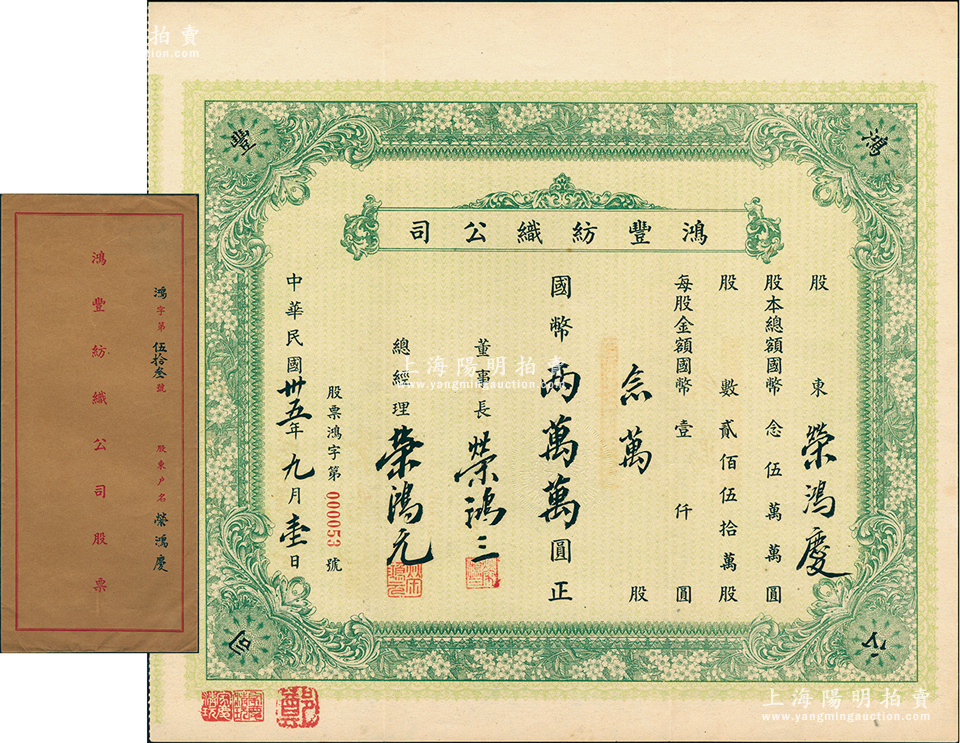 鴻豐紡織公司
股東 榮鴻慶
股本總額國幣念伍萬萬圓
股數貳佰伍拾萬股
每股金額國幣壹仟圓
念萬股
國幣兩萬萬圓正
董事長 榮鴻三
總經理 榮鴻元
股票鴻字第000053號
中華民國卅五年九月壹日
鴻
豐
公
司
鴻字第伍拾叁號 股東户名 榮鴻慶
鴻豐紡織公司股票
上海陽明拍賣
www.yangmingauction.com
上海陽明拍賣
www.yangmingauction.com